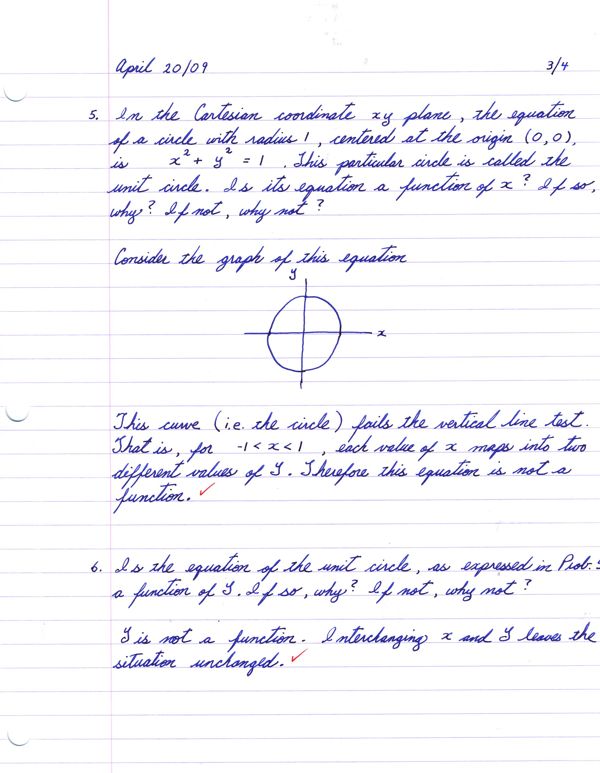 April 20/09 3/4
5. In the Cartesian coordinate xy plane, the equation
of a circle with radius 1, centered at the origin (0,0),
is x² + y² = 1. This particular circle is called the
unit circle. Is its equation a function of x? If so,
why? If not, why not?
Consider the graph of this equation
y
x
This curve (i.e. the circle) fails the vertical line test.
That is, for -1 < x < 1, each value of x maps into two
different values of y. Therefore this equation is not a
function. ✓
6. Is the equation of the unit circle, as expressed in Prob. 5
a function of y. If so, why? If not, why not?
Y is not a function. Interchanging x and y leaves the
situation unchanged. ✓